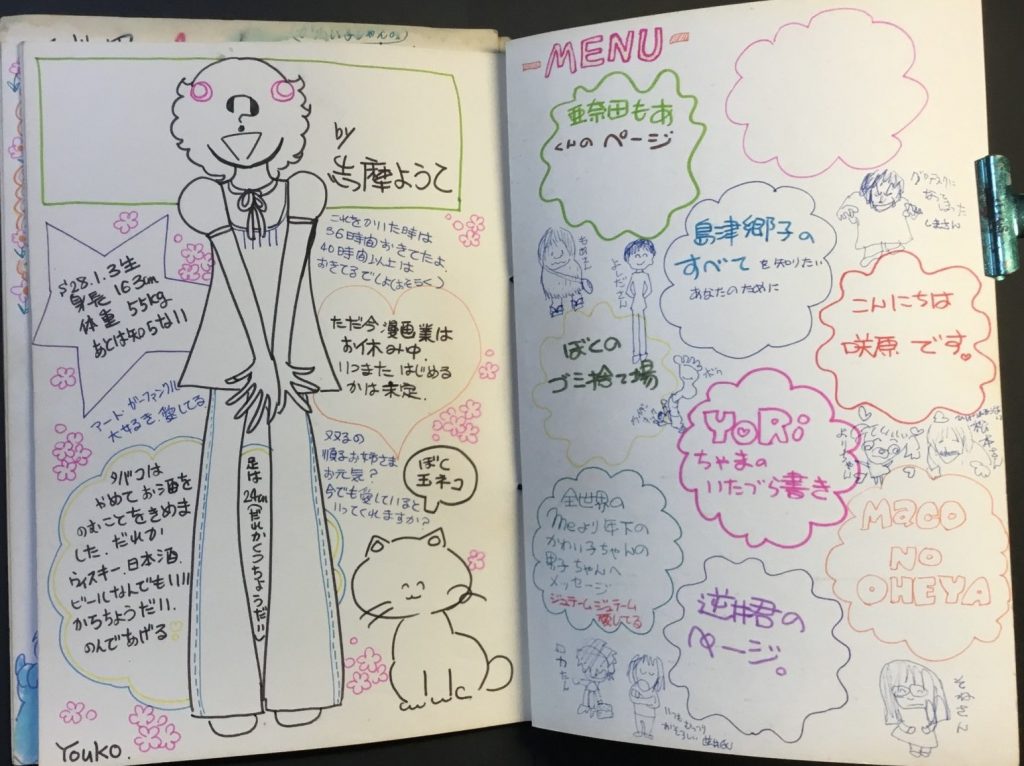 by
志摩ようこ
これをかいた時は
36時間おきてたよ.
40時間以上は
おきてるでしょ(おそらく)
S28.1.3生
身長 163cm
体重 55kg
あとは知らない
ただ今漫画業は
お休み中.
いつまた はじめる
かは未定.
アート・ガーファンクル
大好き.愛してる
タバコは
やめて お酒を
のむことをきめま
した. だれか
ウィスキー.日本酒.
ビールなんでもいい
からちょうだい.
のんであげる
足は24cm(だれかくつちょうだい)
双子の
順子お姉さま
お元気?
今でも愛していると
いってくれますか?
ぼく
玉ネコ
Youko.
MENU
亜奈田もあ
くんの ページ
島津郷子の
すべて を知りたい
あなたのために
しまさん
もあさん
よしださん
こんにちは
咲原 です。
ぼくの
ゴミ捨て場
YORi
ちゃまの
いたづら書き
松本さん
全世界の
meより年下の
かわい子ちゃんの
男子ちゃんへ
メッセージ
ジュテーム ジュテーム
愛してる
MaCO
NO
OHEYA
逆井君の
ページ。
そねさん